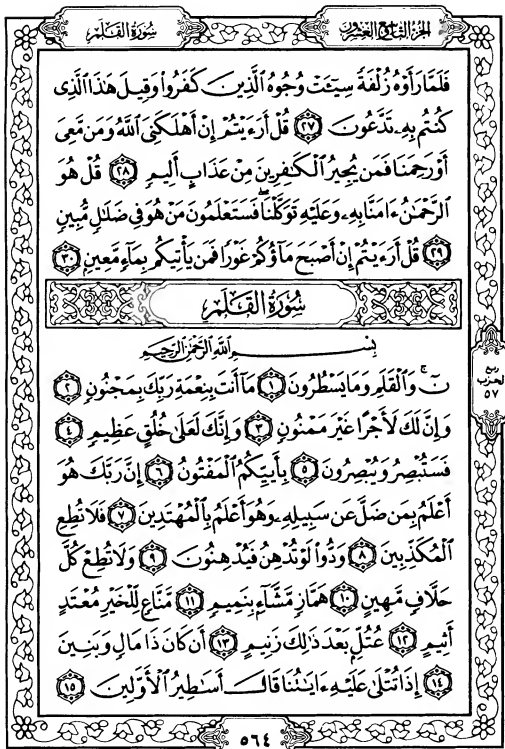 الجزء التاسع والعشرون
سُورَةُ القَلَمِ
فَلَمَّا رَأَوْهُ زُلْفَةً سِيٓـَٔتْ وُجُوهُ ٱلَّذِينَ كَفَرُواْ وَقِيلَ هَٰذَا ٱلَّذِى
كُنتُم بِهِۦ تَدَّعُونَ ٢٧ قُلْ أَرَءَيْتُمْ إِنْ أَهْلَكَنِىَ ٱللَّهُ وَمَن مَّعِىَ
أَوْ رَحِمَنَا فَمَن يُجِيرُ ٱلْكَٰفِرِينَ مِنْ عَذَابٍ أَلِيمٍ ٢٨ قُلْ هُوَ
ٱلرَّحْمَٰنُ ءَامَنَّا بِهِۦ وَعَلَيْهِ تَوَكَّلْنَاۖ فَسَتَعْلَمُونَ مَنْ هُوَ فِى ضَلَٰلٍ مُّبِينٍ
٢٩ قُلْ أَرَءَيْتُمْ إِنْ أَصْبَحَ مَآؤُكُمْ غَوْرًا فَمَن يَأْتِيكُم بِمَآءٍ مَّعِينٍ ٣٠
سُورَةُ القَلَمِ
بِسْمِ ٱللَّهِ ٱلرَّحْمَٰنِ ٱلرَّحِيمِ
نٓۚ وَٱلْقَلَمِ وَمَا يَسْطُرُونَ ١ مَآ أَنتَ بِنِعْمَةِ رَبِّكَ بِمَجْنُونٍ ٢
وَإِنَّ لَكَ لَأَجْرًا غَيْرَ مَمْنُونٍ ٣ وَإِنَّكَ لَعَلَىٰ خُلُقٍ عَظِيمٍ ٤
فَسَتُبْصِرُ وَيُبْصِرُونَ ٥ بِأَييِّكُمُ ٱلْمَفْتُونُ ٦ إِنَّ رَبَّكَ هُوَ
أَعْلَمُ بِمَن ضَلَّ عَن سَبِيلِهِۦ وَهُوَ أَعْلَمُ بِٱلْمُهْتَدِينَ ٧ فَلَا تُطِعِ
ٱلْمُكَذِّبِينَ ٨ وَدُّواْ لَوْ تُدْهِنُ فَيُدْهِنُونَ ٩ وَلَا تُطِعْ كُلَّ
حَلَّافٍ مَّهِينٍ ١٠ هَمَّازٍ مَّشَّآءٍۭ بِنَمِيمٍ ١١ مَّنَّاعٍ لِّلْخَيْرِ مُعْتَدٍ
أَثِيمٍ ١٢ عُتُلٍّۭ بَعْدَ ذَٰلِكَ زَنِيمٍ ١٣ أَن كَانَ ذَا مَالٍ وَبَنِينَ
١٤ إِذَا تُتْلَىٰ عَلَيْهِ ءَايَٰتُنَا قَالَ أَسَٰطِيرُ ٱلْأَوَّلِينَ ١٥
ربع
الحزب
٥٧
٥٦٤